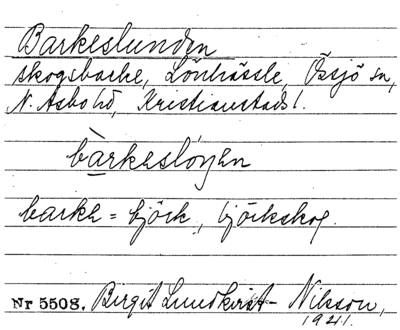 Barkeslunden
skogsbacke, Lönhässle, Össjö sn,
N. Åsbo hd, Kristianstads l.
bàrkesloŋen
barke = björk, björkskog.
Nr 5508. Birgit Lundkvist-Nilsson,
1941.